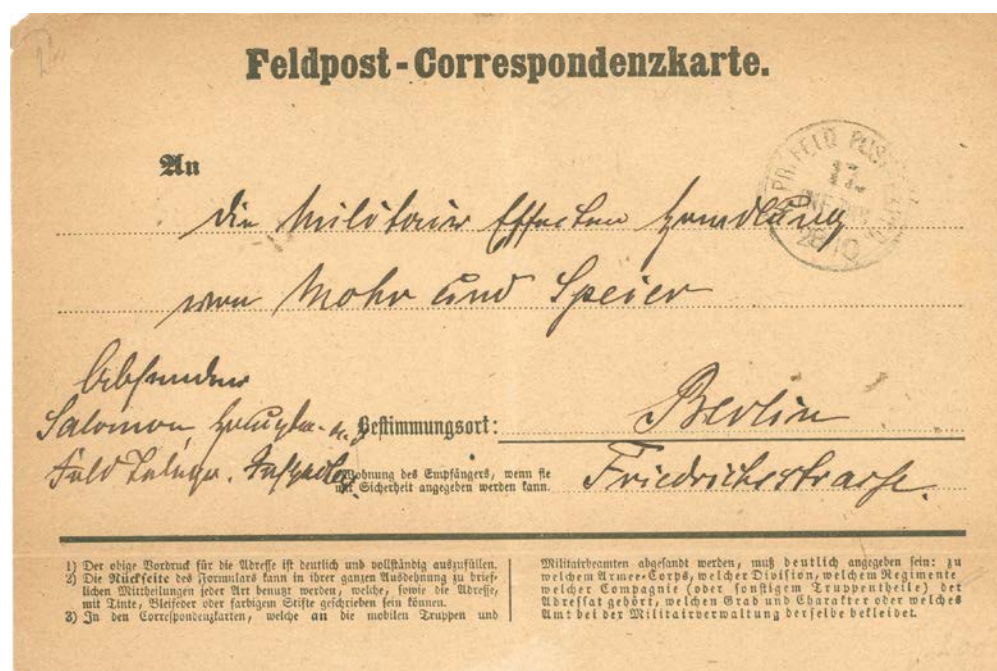 Feldpost-Correspondenzkarte.
An
die Militair Effecten Handlung
von Mohr und Speier
Absender
Salomon
Feld
Bestimmungsort: Berlin
Wohnung des Empfängers, wenn sie
mit Sicherheit angegeben werden kann.
Friedrichsstrasse.
K. PR. FELD POST
17.
INF. DIV.
28 10
1) Der obige Vordruck für die Adresse ist deutlich und vollständig auszufüllen.
2) Die Rückseite des Formulars kann in ihrer ganzen Ausdehnung zu brief-
lichen Mittheilungen jeder Art benutzt werden, welche, sowie die Adresse,
mit Tinte, Bleifeder oder farbigem Stifte geschrieben sein können.
3) In den Correspondenzkarten, welche an die mobilen Truppen und
Militairbeamten abgesandt werden, muß deutlich angegeben sein: zu
welchem Armee-Corps, welcher Division, welchem Regimente
welcher Compagnie (oder sonstigem Truppentheile) der
Adressat gehört, welchen Grad und Charakter oder welches
Amt bei der Militairverwaltung derselbe bekleidet.